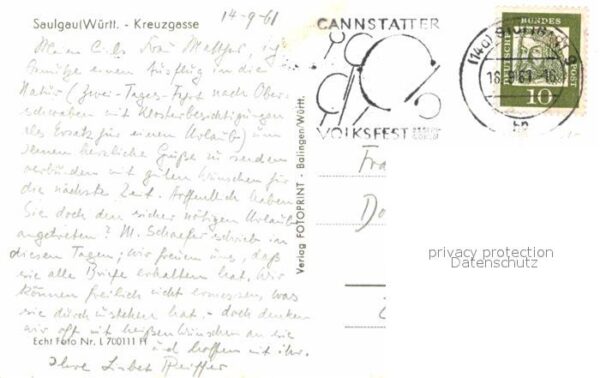 Saulgau/Württ. - Kreuzgasse
14-9-61
Frau
benütze einen Ausflug in die
Natur (Zwei-Tages-Fahrt nach Ober-
schwaben mit Klosterbesichtigungen
als Ersatz für einen Urlaub) um
Ihnen herzliche Grüße zu senden
verbunden mit guten Wünschen für
die nächste Zeit. Hoffentlich haben
Sie doch den sicher nötigen Urlaub
angetreten? M. Schaefer schrieb in
diesen Tagen; wir freuen uns, daß
sie alle Briefe erhalten hat. Wir
können freilich nicht ermessen, was
sie durchzustehen hat - doch denken
wir oft mit heißen Wünschen an sie
und hoffen mit ihr.
Ihre Lisbet Pfeiffer
Echt Foto Nr. L 700111 H
Verlag FOTOPRINT - Balingen/Württ.
CANNSTATTER
VOLKSFEST
(14a) STUTTGART 9
BUNDES
DEUTSCHE
10
Fra
Do
privacy protection
Datenschutz